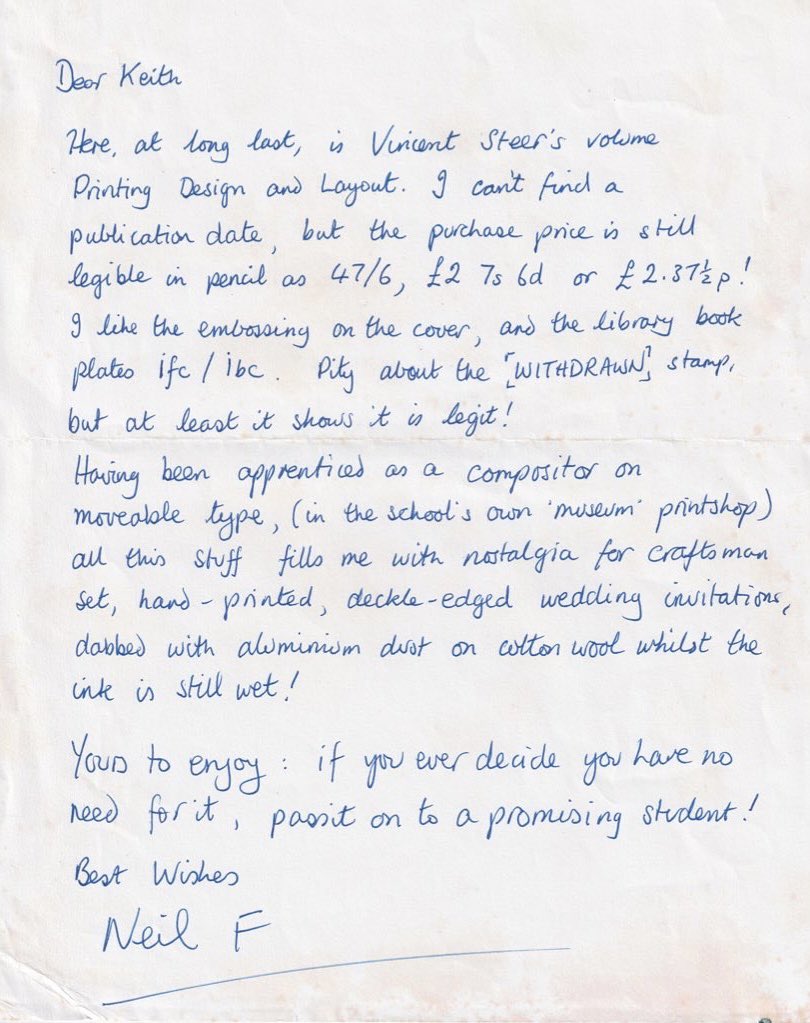 Dear Keith
Here, at long last, is Vincent Steer's volume
Printing Design and Layout. I can't find a
publication date, but the purchase price is still
legible in pencil as 47/6, £2 7s 6d or £2.37½p!
I like the embossing on the cover, and the library book
plates ifc / ibc. Pity about the [WITHDRAWN] stamp,
but at least it shows it is legit!
Having been apprenticed as a compositor on
moveable type, (in the school's own 'museum' printshop)
all this stuff fills me with nostalgia for craftsman
set, hand-printed, deckle-edged wedding invitations,
dabbed with aluminium dust on cotton wool whilst the
ink is still wet!
Yours to enjoy: if you ever decide you have no
need for it, pass it on to a promising student!
Best Wishes
Neil F